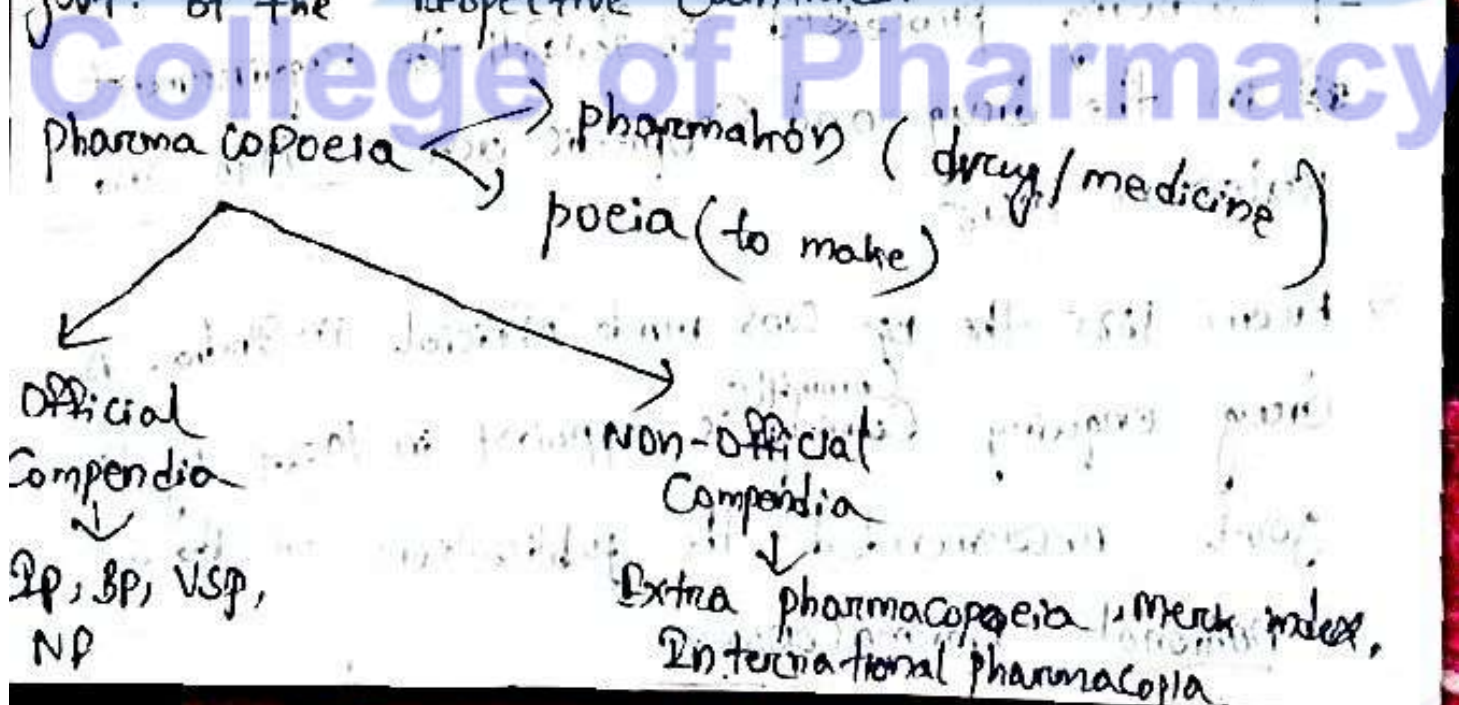 govt. of the respective countries.
College of Pharmacy
pharma copoeia
pharmakon (drug/medicine)
poeia (to make)
Official
Compendia
IP, BP, USP,
NP
Non-official
Compendia
Extra pharmacopoeia, Merk index,
International pharmacopia